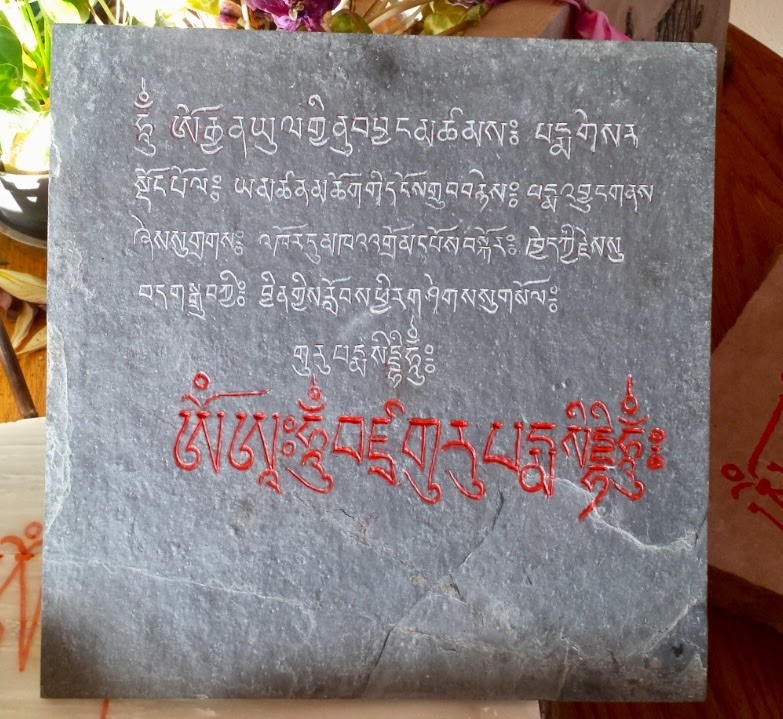 ཧཱུྃ ཨོརྒྱནཡུལགྱིནུབབྱངམཚམས༔ པདྨགེསར
སྡོངཔོལ༔ ཡམཚནམཆོགགིདངོསགྲུབབརྙེས༔ པདྨའབྱུངགནས
ཞེསསུགྲགས༔ འཁོརདུམཁའའགྲོམངཔོསབསྐོར༔ ཁྱེདཀྱིརྗེསསུ
བདགསྒྲུབཀྱི༔ བྱིནགྱིསརློབསཕྱིརགཤེགསསུགསོལ༔
གུརུཔདྨསིདྡྷིཧཱུྃ༔
ཨོཾཨཱཿཧཱུྃབཛྲགུརུཔདྨསིདྡྷིཧཱུྃ༔